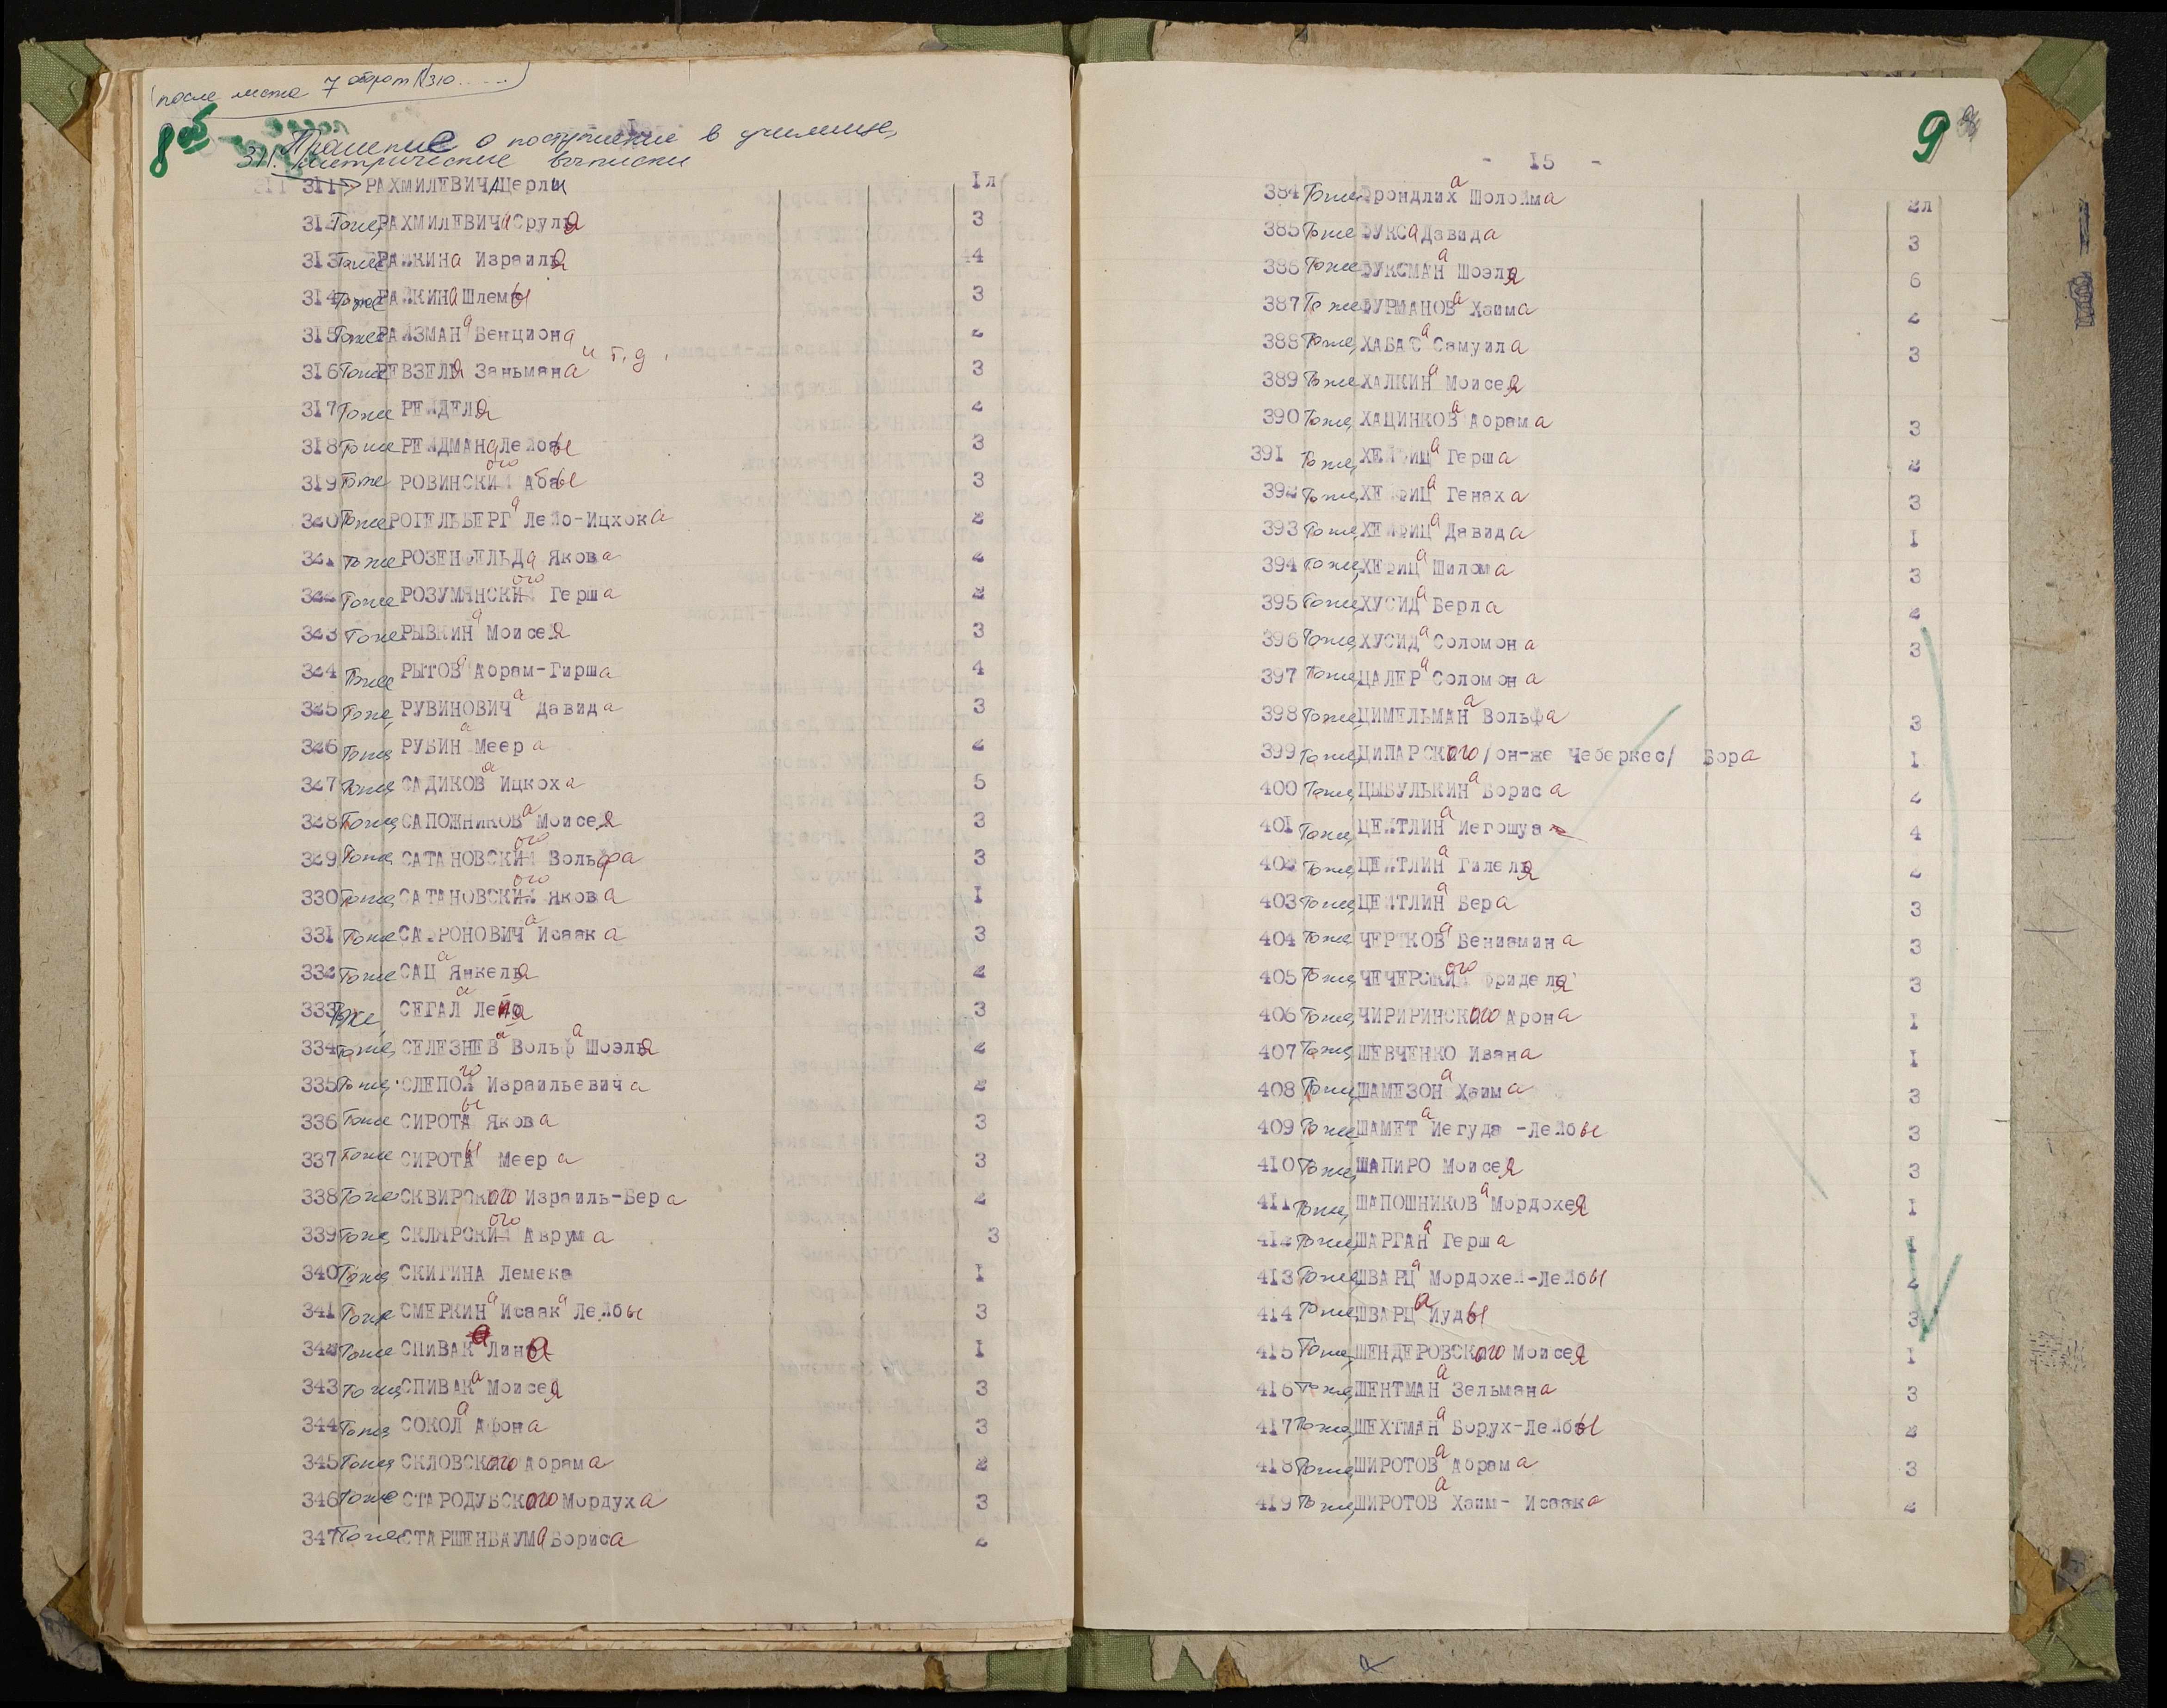 (после листа 7 оборот №310.....)
8об
Прошение о поступление в училище,
311. метрические выписки
311 РАХМИЛЕВИЧ Церли 1л
312 То же, РАХМИЛЕВИЧа Сруля 3
313 То же РАЙКИНа Израиля 44
314 То же РАЙКИНа Шлемы 3
315 То же РАЙЗМАНа Бенциона 2
и т.д.
316 То же РЕВЗЕЛЯ Заньмана 3
317 То же РЕЙДЕЛЯ 2
318 То же РЕЙДМАНа Лейбы 3
319 То же РОВИНСКОГО Абы 3
320 То же РОГЕЛЬБЕРГа Лейб-Ицхока 2
321 То же РОЗЕНФЕЛЬДа Якова 2
322 То же РОЗУМЯНСКОГО Герша 2
323 То же РЫВКИНа Моисея 3
324 То же РЫТОВа Абрам-Гирша 4
325 То же, РУВИНОВИЧа Давида 3
326 То же РУБИНа Меера 2
327 То же САДИКОВа Ицкоха 5
328 То же, САПОЖНИКОВа Моисея 3
329 То же, САТАНОВСКОГО Вольфа 3
330 То же, САТАНОВСКОГО Якова 1
331 То же САФРОНОВИЧа Исаака 3
332 То же САЦа Янкеля 2
333 То же, СЕГАЛа Лейба 3
334 То же, СЕЛЕЗНЕВа Вольфа Шоэля 2
335 То же, СЛЕПОГО Израильевича 2
336 То же СИРОТЫ Якова 3
337 То же СИРОТЫ Меера 3
338 То же СКВИРСКОГО Израиль-Бера 2
339 То же, СКЛЯРСКОГО Аврума 3
340 То же СКИГИНА Лемека 1
341 То же СМЕРКИНа Исаака Лейбы 3
342 То же СПИВАК Лина 1
343 То же, СПИВАКа Моисея 3
344 То же СОКОЛа Афона 3
345 То же СКЛОВСКОГО Абрама 2
346 То же СТАРОДУБСКОГО Мордуха 3
347 То же СТАРШЕНБАУМа Бориса 2
9
- 15 -
384 То же ФРОНДЛИХа Шолойма 2л
385 То же ФУКСа Давида 3
386 То же ФУКСМАНа Шоэля 6
387 То же ФУРМАНОВа Хаима 2
388 То же, ХАБАСа Самуила 3
389 То же, ХАЛКИНа Моисея
390 То же, ХАЦИНКОВа Абрама 3
391 То же, ХЕЙФИЦа Герша 2
392 То же, ХЕЙФИЦа Генаха 3
393 То же, ХЕЙФИЦа Давида 1
394 То же, ХЕФИЦа Шилома 3
395 То же, ХУСИДа Берла 2
396 То же, ХУСИДа Соломона 3
397 То же, ЦАЛЕРа Соломона
398 То же, ЦИМЕЛЬМАНа Вольфа 3
399 То же, ЦИПАРСКОГО /он-же Чеберкес/ Бора 1
400 То же, ЦЫБУЛЬКИНа Бориса 2
401 То же, ЦЕЙТЛИНа Иегошуа 4
402 То же, ЦЕЙТЛИНа Гилеля 2
403 То же, ЦЕЙТЛИНа Бера 3
404 То же, ЧЕРТКОВа Бениамина 3
405 То же, ЧЕЧЕРСКОГО Фриделя 3
406 То же, ЧИРИРИНСКОГО Арона 1
407 То же, ШЕВЧЕНКО Ивана 1
408 То же, ШАМЕЗОНа Хаима 3
409 То же ШАМЕТа Иегуда-Лейбы 3
410 То же, ШАПИРО Моисея 3
411 То же, ШАПОШНИКОВа Мордохея 1
412 То же, ШАРГАНа Герша 1
413 То же ШВАРЦа Мордохей-Лейбы 2
414 То же, ШВАРЦа Иуды 3
415 То же, ШЕНДЕРОВСКОГО Моисея 1
416 То же, ШЕНТМАНа Зельмана 3
417 То же, ШЕХТМАНа Борух-Лейбы 2
418 То же, ШИРОТОВа Абрама 3
419 То же, ШИРОТОВа Хаим- Исаака 2